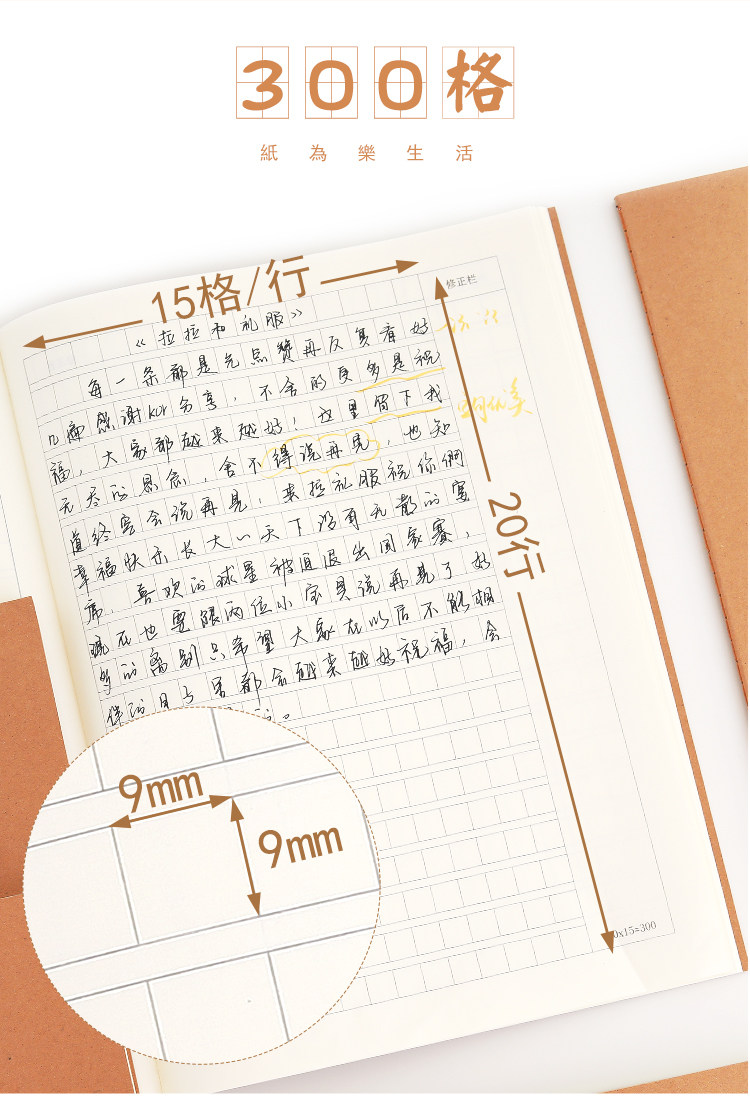 300格
紙為樂生活
15格/行
修正栏
《拉拉和礼服》
每一条都是先点赞再反复看好
几遍感谢kol分享，不舍的更多是祝
福，大家都越来越好！这里留下我
无尽的思念，舍不得说再见，也知
道终究会说再见，来拉礼服祝你们
幸福快乐长大～天下没有不散的宴
席，喜欢的球星被迫退出国家赛，
现在也要跟两位小宝贝说再见了好
多的离别只希望大家在以后不能相
伴的日子里都会越来越好祝福，会
20行
9mm
9mm
0x15=300